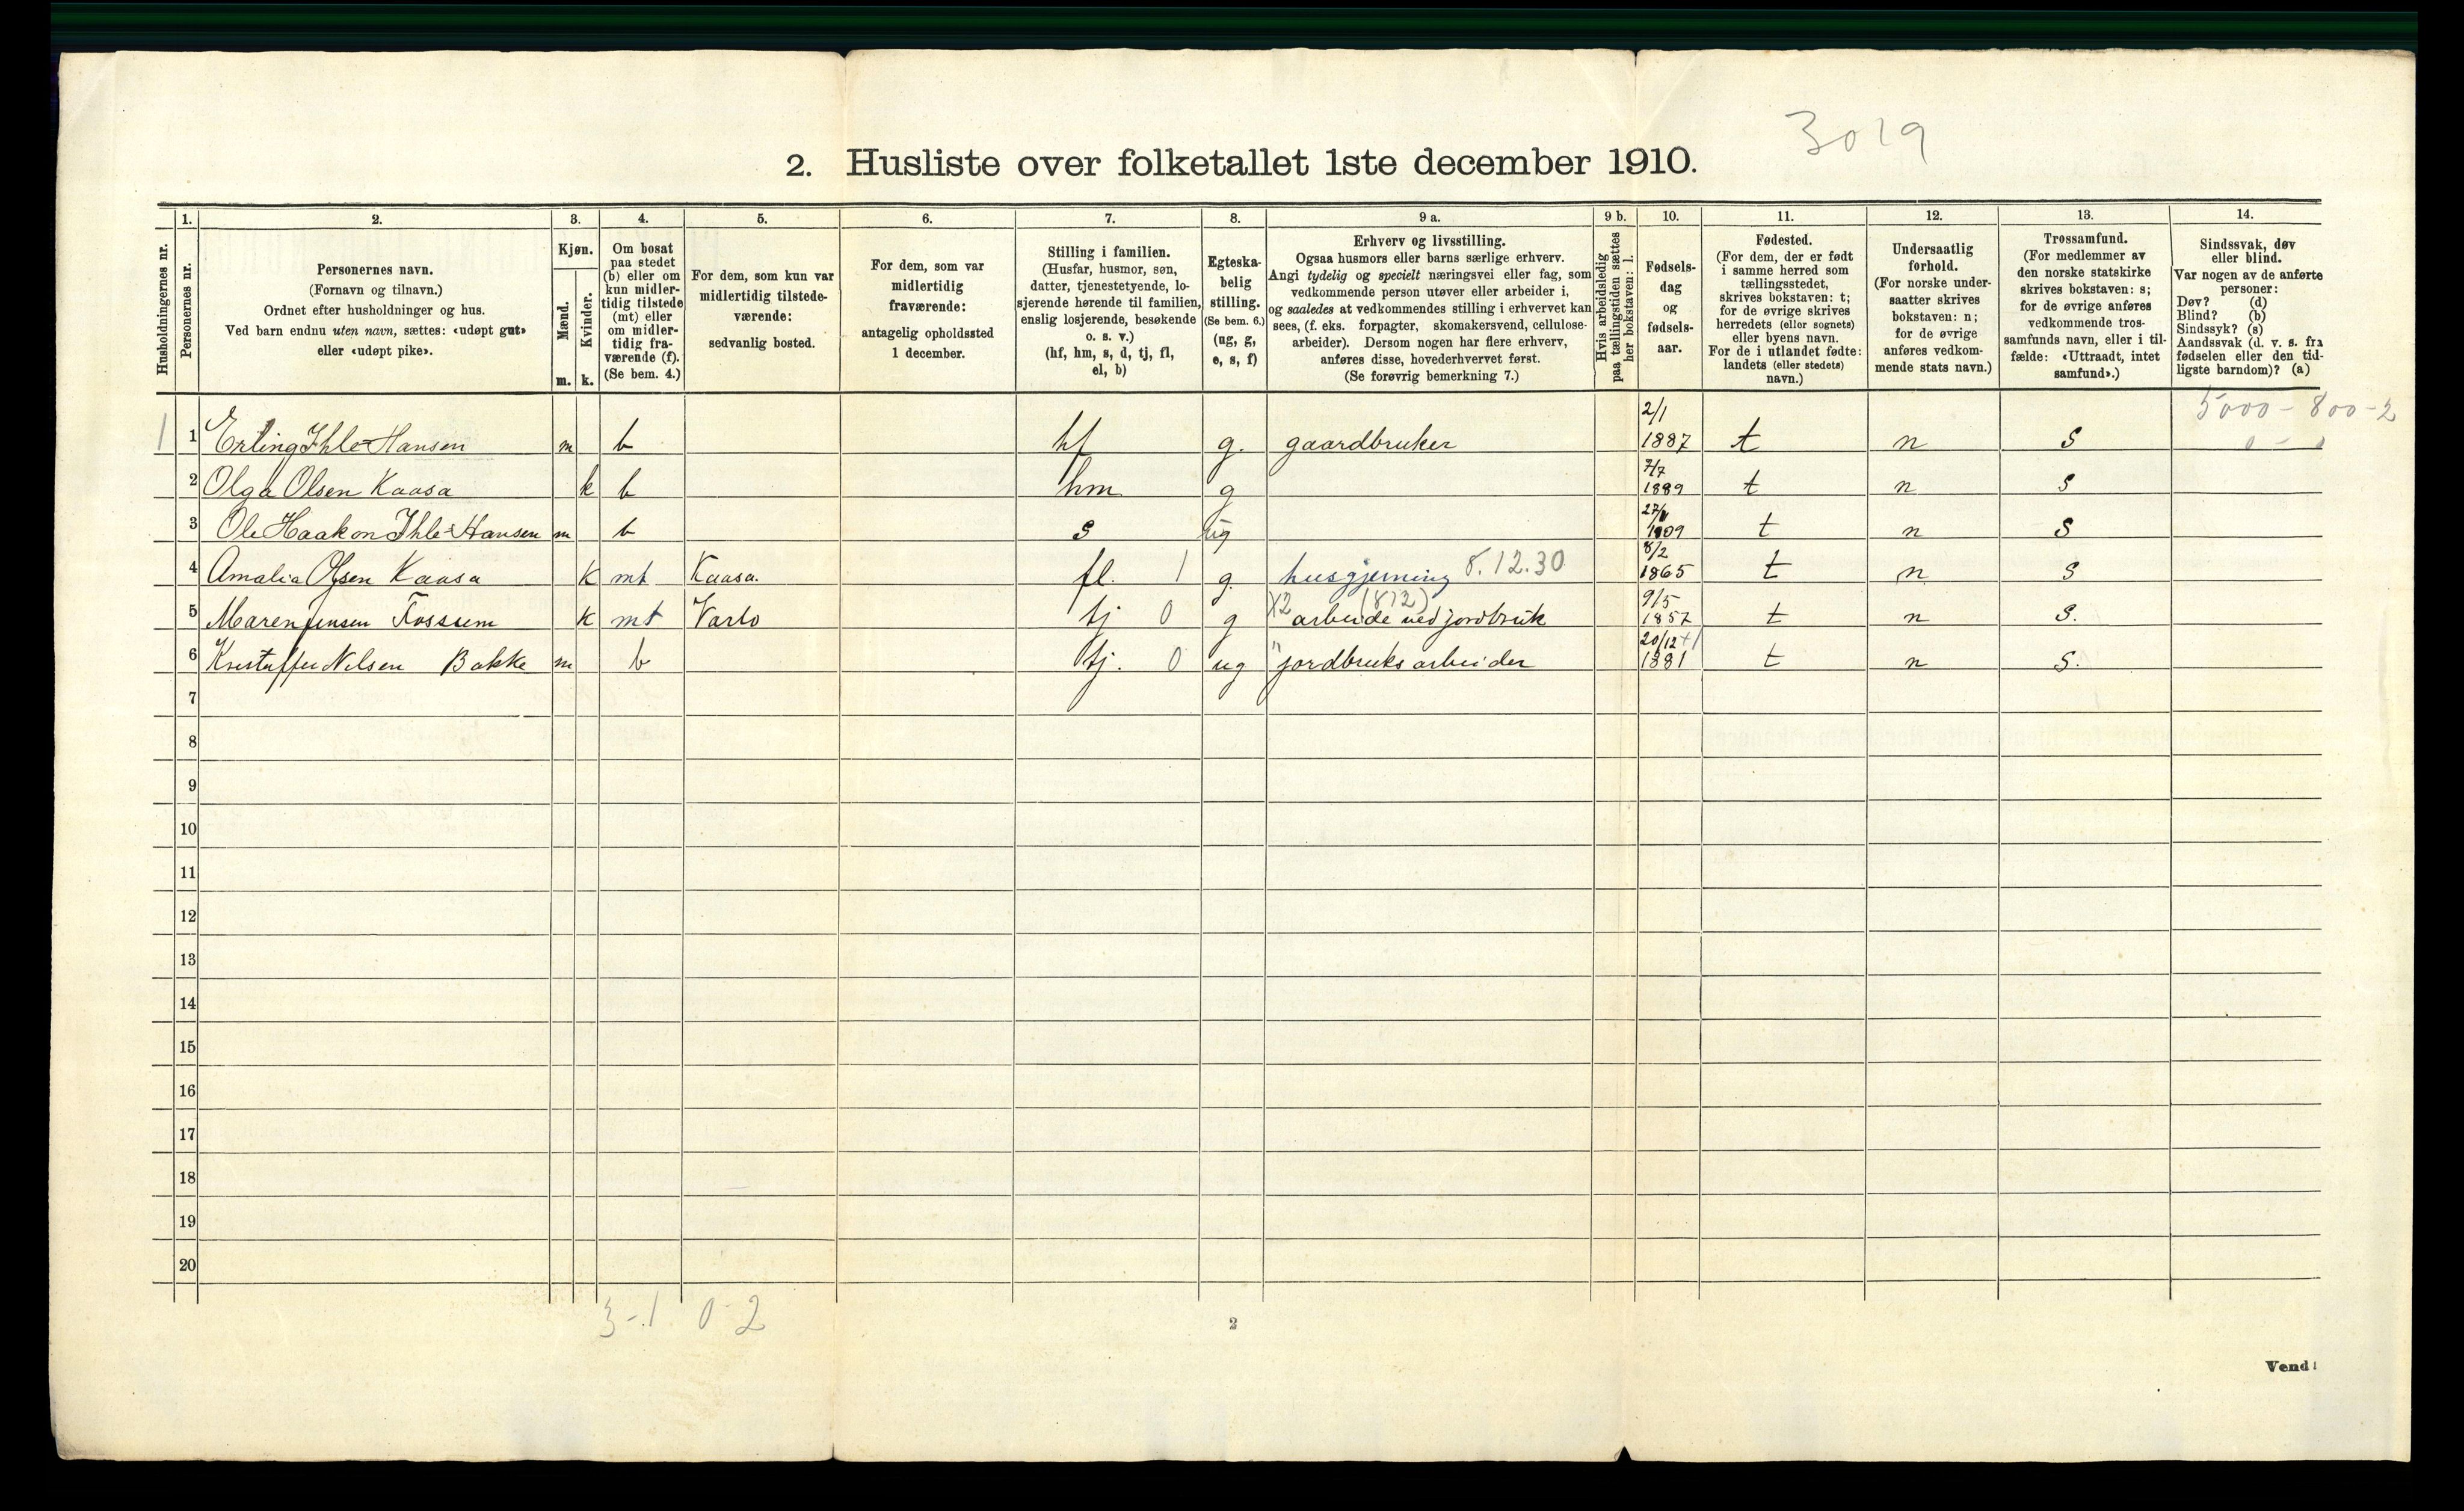 3019
2. Husliste over folketallet 1ste december 1910.
Husholdningernes nr.
1. Personernes nr.
2. Personernes navn.
(Fornavn og tilnavn.)
Ordnet efter husholdninger og hus.
Ved barn endnu uten navn, sættes: «udøpt gut»
eller «udøpt pike».
3. Kjøn.
Mænd. m.
Kvinder. k.
4. Om bosat
paa stedet
(b) eller om
kun midler-
tidig tilstede
(mt) eller
om midler-
tidig fra-
værende (f).
(Se bem. 4.)
5. For dem, som kun var
midlertidig tilstede-
værende:
sedvanlig bosted.
6. For dem, som var
midlertidig
fraværende:
antagelig opholdssted
1 december.
7. Stilling i familien.
(Husfar, husmor, søn,
datter, tjenestetyende, lo-
sjerende hørende til familien,
enslig losjerende, besøkende
o. s. v.)
(hf, hm, s, d, tj, fl,
el, b)
8. Egteska-
belig
stilling.
(Se bem. 6.)
(ug, g,
e, s, f)
9 a. Erhverv og livsstilling.
Ogsaa husmors eller barns særlige erhverv.
Angi tydelig og specielt næringsvei eller fag, som
vedkommende person utøver eller arbeider i,
og saaledes at vedkommendes stilling i erhvervet kan
sees, (f. eks. forpagter, skomakersvend, cellulose-
arbeider). Dersom nogen har flere erhverv,
anføres disse, hovederhvervet først.
(Se forøvrig bemerkning 7.)
9 b. Hvis arbeidsledig
paa tællingstiden sættes
her bokstaven: l.
10. Fødsels-
dag
og
fødsels-
aar.
11. Fødested.
(For dem, der er født
i samme herred som
tællingsstedet,
skrives bokstaven: t;
for de øvrige skrives
herredets (eller sognets)
eller byens navn.
For de i utlandet fødte:
landets (eller stedets)
navn.)
12. Undersaatlig
forhold.
(For norske under-
saatter skrives
bokstaven: n;
for de øvrige
anføres vedkom-
mende stats navn.)
13. Trossamfund.
(For medlemmer av
den norske statskirke
skrives bokstaven: s;
for de øvrige anføres
vedkommende tros-
samfunds navn, eller i til-
fælde: «Uttraadt, intet
samfund».)
14. Sindssvak, døv
eller blind.
Var nogen av de anførte
personer:
Døv? (d)
Blind? (b)
Sindssyk? (s)
Aandssvak (d. v. s. fra
fødselen eller den tid-
ligste barndom)? (a)
5000 - 800 - 2
1 1 Erling Ihle-Hansen m b hf g. gaardbruker 2/1 1887 t n s
2 Olga Olsen Kaasa k b hm g 7/7 1889 t n s
3 Ole Haakon Ihle-Hansen m b s ug 1909 t n s
4 Amalia Olsen Kaasa k mt Kaasa. fl. 1 g. husgjerning 8.12.30 8/2 1865 t n s
5 Maren Jensen Fossum k mt Varlo tj 0 g X2 (812) arbeide ved jordbruk 9/5 1857 t n s.
6 Kristoffer Nilsen Bakke m b tj. 0 ug " jordbruksarbeider 20/12 1881 t n s.
7
8
9
10
11
12
13
14
15
16
17
18
19
20
3-1 0-2
2
Vend!